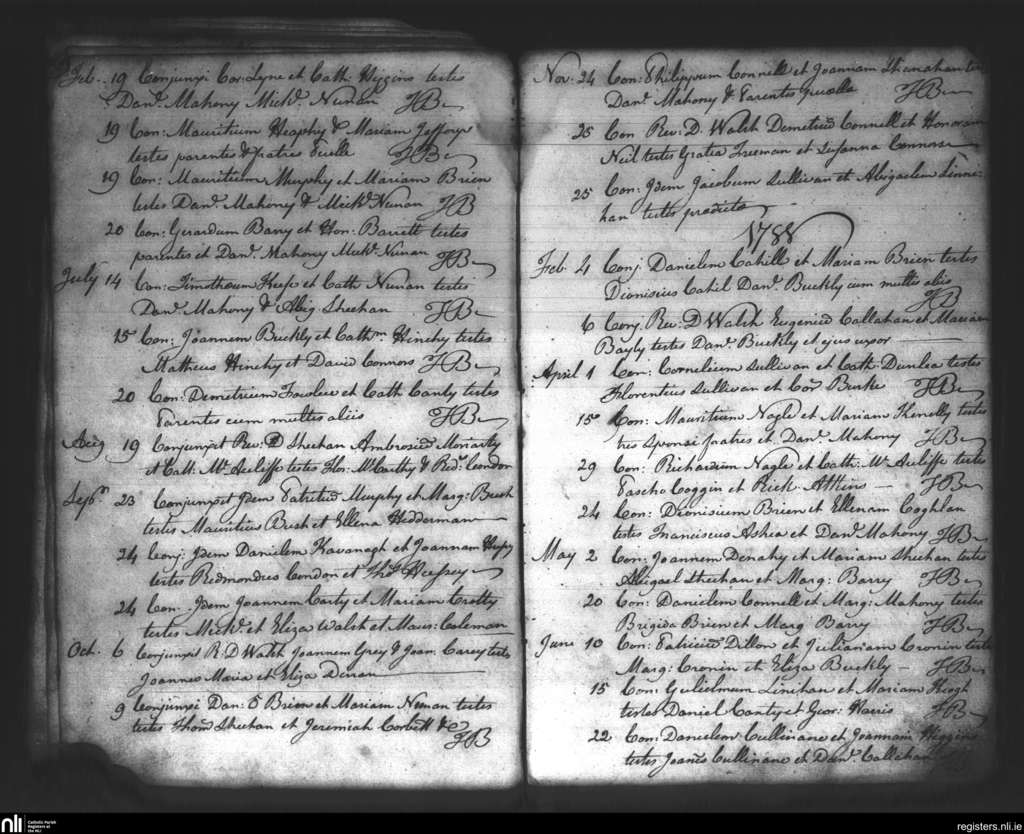 Feb. 19 Conjunxi Cor: Lyne et Cath: Higgins testes
Danl. Mahony Michl. Nunan JB
19 Con: Mauritium Heaphy & Mariam Jefferys
testes parentes & fratres Puelle JB
19 Con: Mauritium Murphy et Mariam Brien
testes Danl. Mahony & Michl. Nunan JB
20 Con: Gerardum Barry et Hon: Barrett testes
parentes et Danl. Mahony Michl. Nunan JB
July 14 Con: Timotheum Keefe et Cath Nunan testes
Danl. Mahony & Abig Sheehan JB
15 Con: Joannem Buckly et Cathm Hinchy testes
Matheus Hinchy et David Connors JB
20 Con: Demetrium et Cath Canty testes
Parentes cum multis aliis JB
Aug 19 Conjunxit Rev: D Sheehan Ambrosium Moriarty
et Cath: Mc Auliffe testes Thos: McCarthy & Redd Condon
Sepr. 23 Conjunxit Idem Patricium Murphy et Marg: Bush
testes Mauritius Bush et Ellena Hedderman
24 Conj: Idem Danielem Kavanagh et Joannam
testes Redmondus Condon et Thos
24 Con: Idem Joannem Carty et Mariam Crotty
testes Michl. et Eliza Walsh et Maus: Coleman
Oct. 6 Conjunxit R. D Walsh Joannem Grey & Joan: Carey testes
Joannes Maria et Eliza Dinan
9 Conjunxi Dan: O Brien et Mariam Nunan testes
testes Thoms Sheehan et Jeremiah Corbett &c JB
Nov. 24 Con: Philippum Connell et Joannam Shanahan
Danl. Mahony & Parentes puella JB
25 Con Rev: D. Walsh Demetrium Connell et Honoram
Neil testes Gratia Freeman et Susanna Connors
25 Con: Idem Jacobum Sullivan et Abigaelem Linne-
han testes praedicta
1788
Feb 4 Conj Danielem Cahill et Mariam Brien testes
Dionisius Cahil Danl. Buckly cum multis aliis
JB
6 Conj Rev: D Walsh Eugenium Callahan et Mariam
Bayly testes Danl. Buckly et ejus uxor
April 1 Con: Cornelium Sullivan et Cath. Dunlea testes
Florentius Sullivan et Cors Burke JB
15 Con: Mauritium Nagle et Mariam Kenelly testes
tres Sponsi fratres et Danl. Mahony JB
29 Con: Richardum Nagle et Cath: Mc Auliffe testes
Coggin et Rich Atkins JB
24 Con: Dionisium Brien et Ellenam Coghlan
testes Franciscus Ashea et Danl Mahony JB
May 2 Con: Joannem Denahy et Mariam Sheehan testes
Abigael Sheehan et Marg: Barry JB
20 Con: Danielem Connell et Marg: Mahony testes
Brigida Brien et Marg Barry JB
June 10 Con: Patricium Dillon et Julianam Cronin testes
Marg: Cronin et Eliza Buckly JB
15 Con: Gulielmum Linihan et Mariam Keogh
testes Daniel Canty et Geor: Harris JB
22 Con: Danielem Cullinane et Joannam Higgins
testes Joanes Cullinane et Danl. Callahan
nli Catholic Parish
Registers at
the NLI
registers.nli.ie